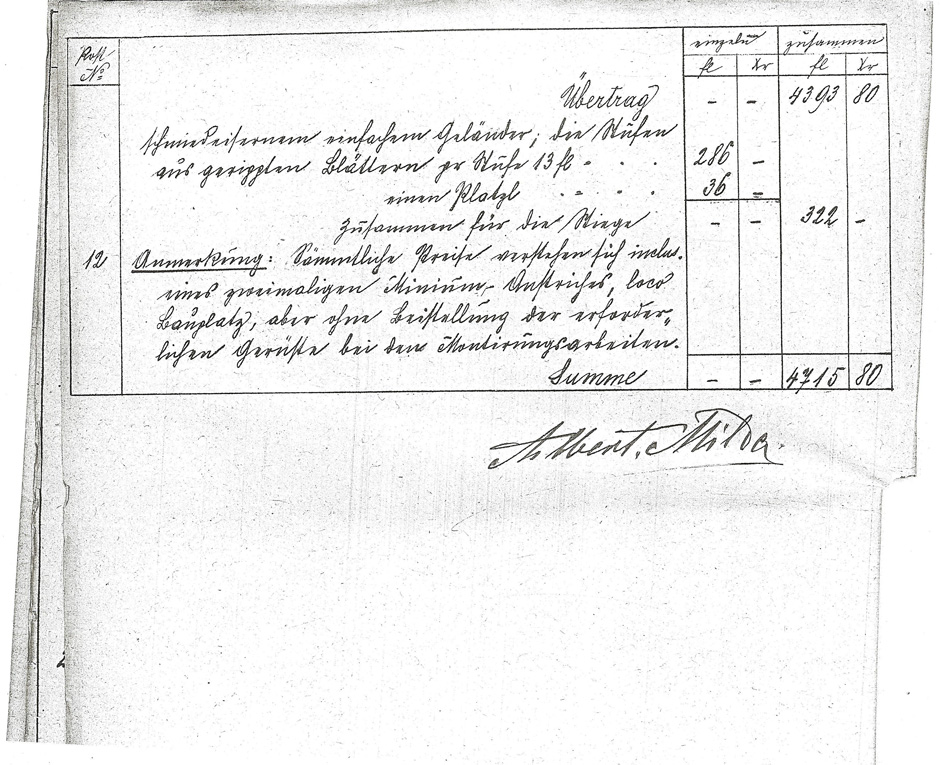 Post No einzeln zusammen
fl Xr fl Xr
Übertrag - - 4393 80
schmiedeisernem einfachem Geländer; die Stufen
aus gerippten Blättern pr Stufe 13 fl 286 -
einen Platzl 36 -
Zusammen für die Stiege - - 322 -
12 Anmerkung: Sämmtliche Preise verstehen sich inclus.
eines zweimaligen Minium-Anstriches, loco
Bauplatz, aber ohne Beistellung der erforder-
lichen Gerüste bei den Montirungsarbeiten.
Summe - - 4715 80
Albert Milde